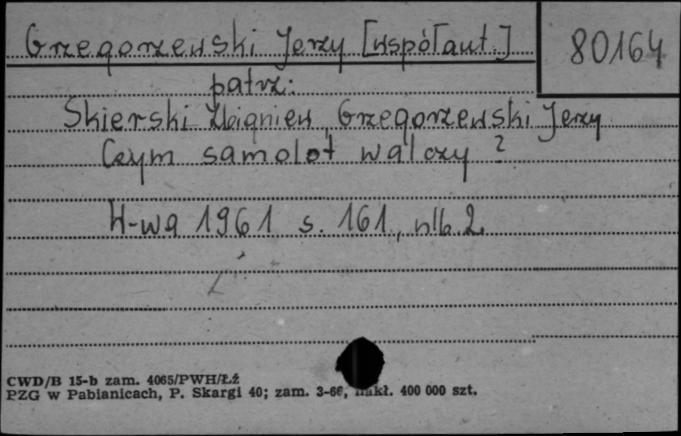 Grzegorzewski Jerzy [współaut.]
80164
patrz:
Skierski Zbigniew, Grzegorzewski Jerzy
Czym samolot walczy?
W-wa 1961 s. 161, nlb. 2.
CWD/B 15-b zam. 4065/PWH/Łź
PZG w Pabianicach, P. Skargi 40; zam. 3-66, nakł. 400 000 szt.